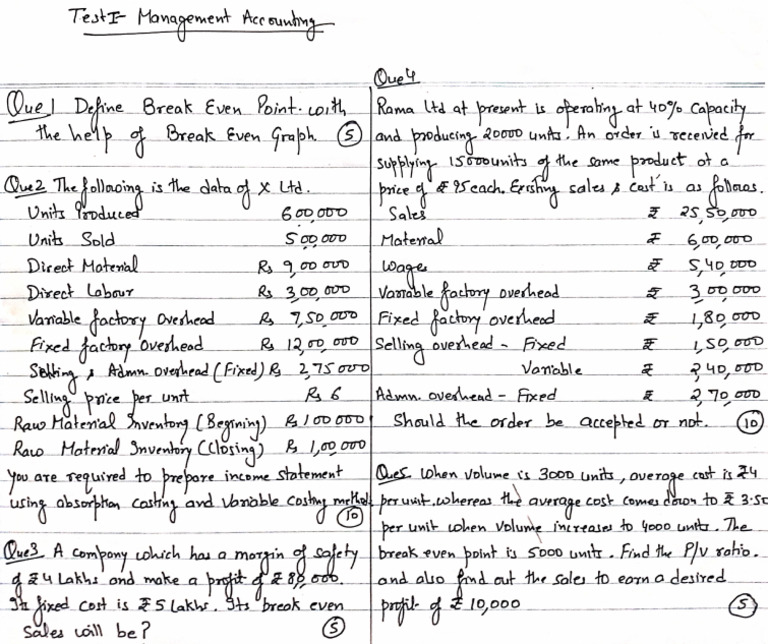 Test I- Management Accounting
Que 1 Define Break Even Point. with
the help of Break Even Graph. (5)
Que2 The following is the data of X Ltd.
Units Produced 600,000
Units Sold 500,000
Direct Material Rs 9,00 000
Direct Labour Rs 3,00,000
Variable factory overhead Rs 7,50 000
Fixed factory overhead Rs 12,00,000
Selling & Admn. overhead (Fixed) Rs 2,75000
Selling price per unit Rs 6
Raw Material Inventory (Beginning) Rs 100 000
Raw Material Inventory (Closing) Rs 1,00,000
You are required to prepare income statement
using absorption costing and variable costing method.
(10)
Que3 A company which has a margin of safety
of ₹4 Lakhs and make a profit of ₹ 80,000.
Its fixed cost is ₹5 Lakhs. Its break even
Sales will be? (5)
Que 4
Rama Ltd at present is operating at 40% capacity
and producing 20000 units. An order is received for
supplying 15000 units of the same product at a
price of ₹ 95 each. Existing sales & cost is as follows.
Sales ₹ 25,50,000
Material ₹ 6,00,000
Wages ₹ 5,40,000
Variable factory overhead ₹ 3,00,000
Fixed factory overhead ₹ 1,80,000
Selling overhead - Fixed ₹ 1,50,000
Variable ₹ 2,40,000
Admn. overhead - Fixed ₹ 2,70,000
Should the order be accepted or not. (10)
Que5. When volume is 3000 units, average cost is ₹4
per unit. whereas the average cost comes down to ₹ 3.50
per unit when volume increases to 4000 units. The
break even point is 5000 units. Find the P/V ratio.
and also find out the sales to earn a desired
profit of ₹ 10,000 (5)